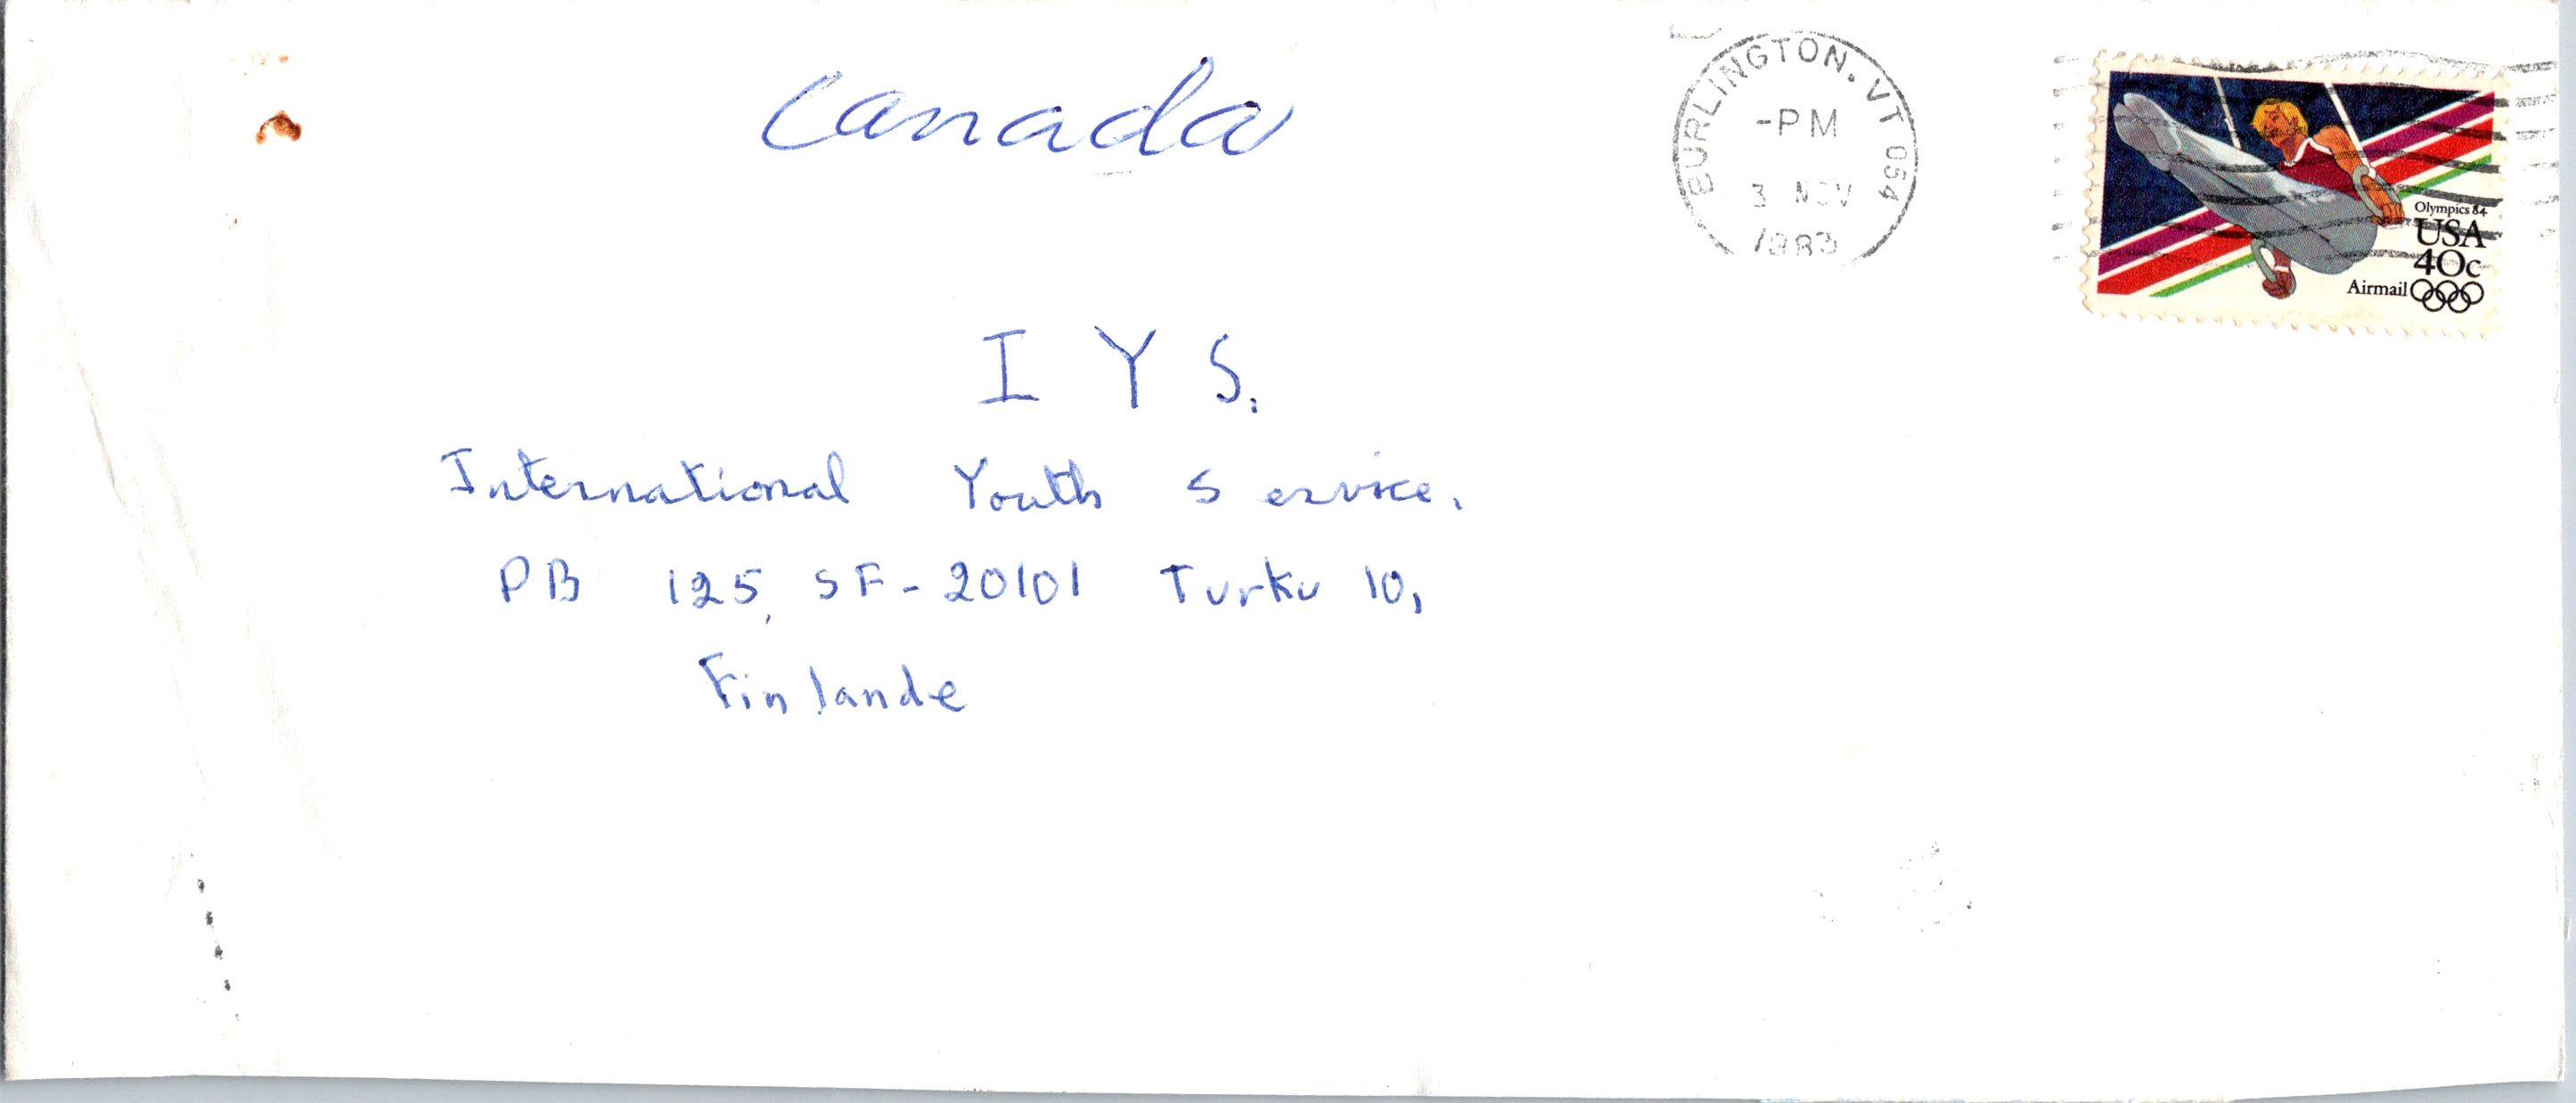 Canada
BURLINGTON. VT 054
-PM
3 NOV
1983
Olympics 84
USA
40c
Airmail
I Y S.
International Youth Service.
PB 125, SF-20101 Turku 10,
Finlande